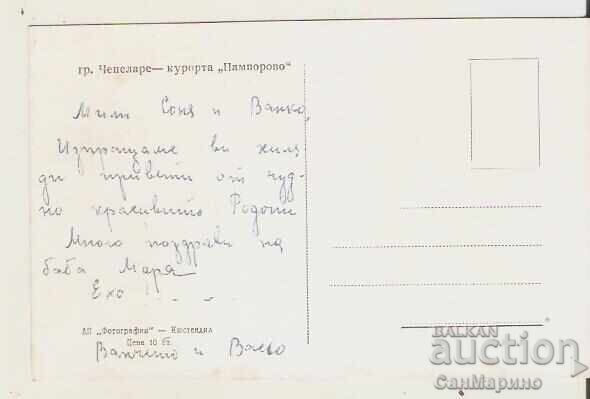 гр. Чепеларе — курорта „Пампорово“
Мили Соня и Ванко,
Изпращаме ви хиля
ди привети от чуд-
но красивите Родопи
Много поздрави на
баба Мара
Ехо
ДП „Фотография“ — Кюстендил
Цена 10 ст.
Ванчето и Васко
BALKAN
auction
СанМарино